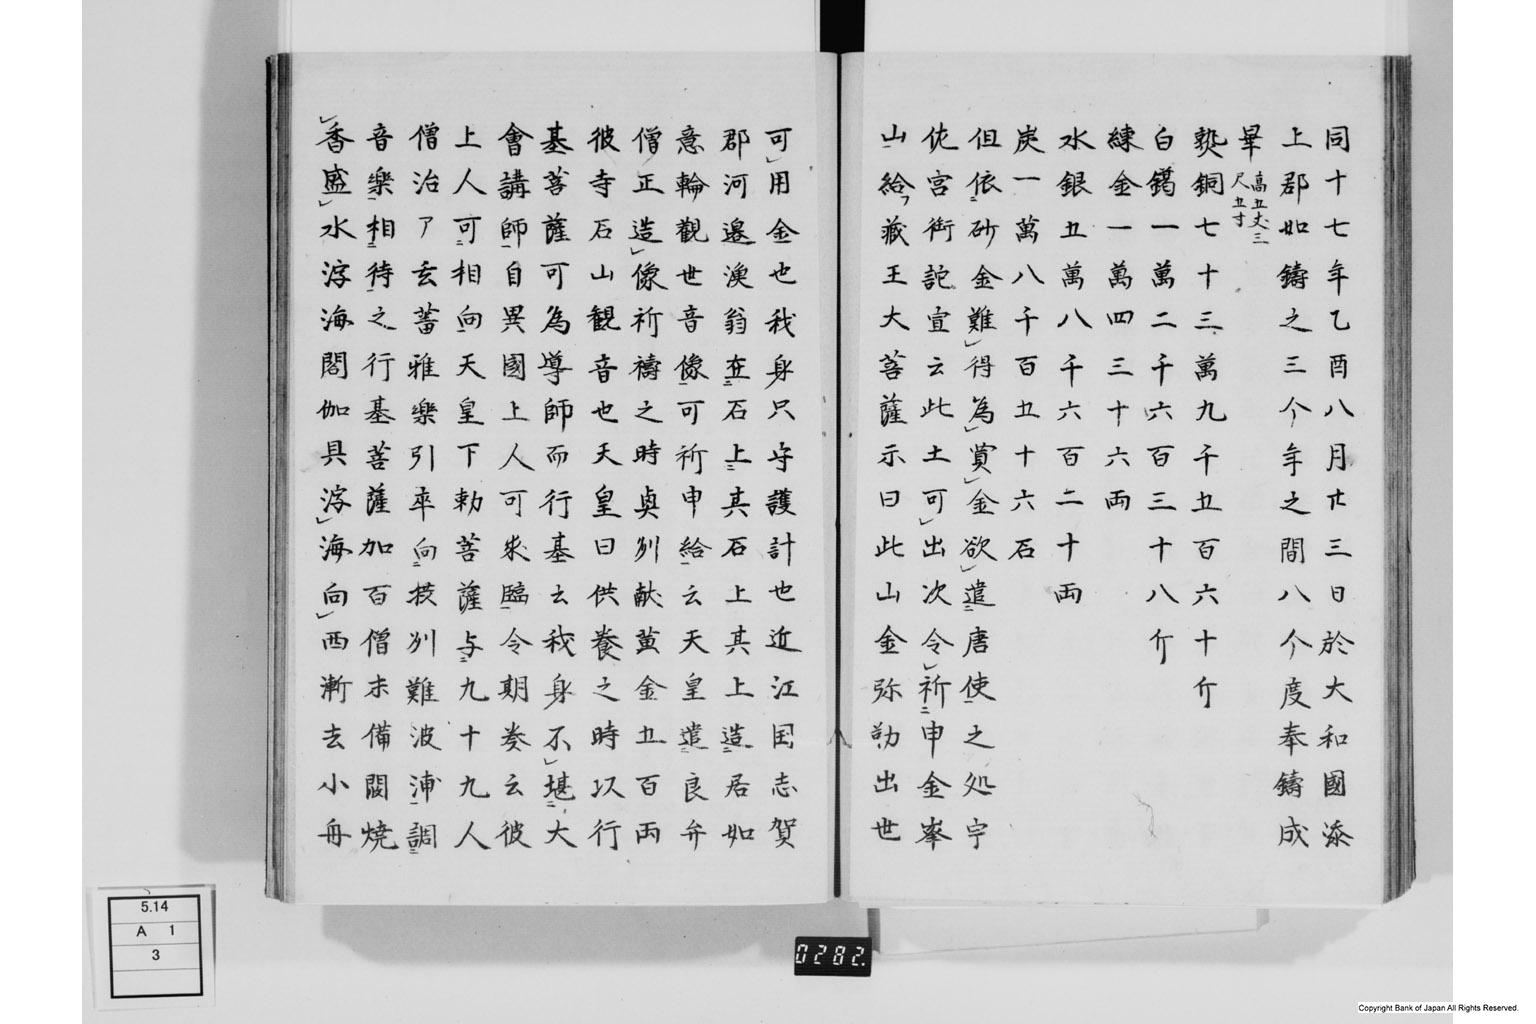 同十七年乙酉八月廿三日於大和國添
上郡如鑄之三ケ年之間八ケ度奉鑄成
畢高五丈三
尺五寸
熟銅七十三萬九千五百六十斤
白鑞一萬二千六百三十八斤
練金一萬四三十六両
水銀五萬八千六百二十両
炭一萬八千百五十六石
但依砂金難得為賞金欲遣唐使之処宇
佐宮御託宣云此土可出次令祈申金峯
山給蔵王大菩薩示曰此山金弥勒出世
可用金也我身只守護計也近江国志賀
郡河邊漁翁在石上其石上其上造居如
意輪觀世音像可祈申給云天皇遣良弁
僧正造像祈禱之時奥州献黄金五百両
彼寺石山観音也天皇曰供養之時以行
基菩薩可為導師而行基云我身不堪大
會講師自異國上人可来臨令期奏云彼
上人可相向天皇下勅菩薩与九十九人
僧治了玄蕃雅樂引率向摂州難波浦調
音樂相待之行基菩薩加百僧末備閼焼
香盛水浮海閼伽具浮海向西漸去小舟
5.14
A 1
3
0282.
Copyright Bank of Japan All Rights Reserved.